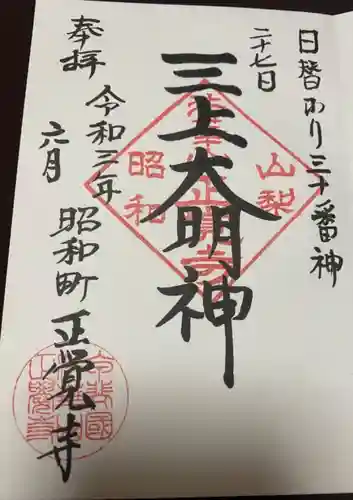 日替わり三十番神
二十七日
三上大明神
奉拝
令和三年
六月
昭和町 正覚寺
山梨
昭和
正覚寺